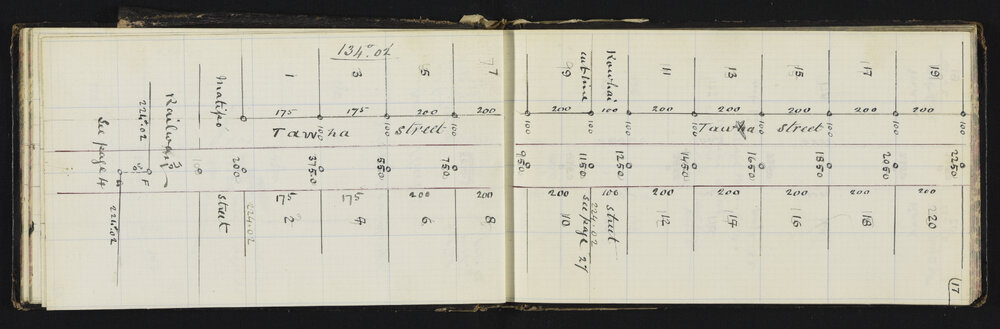 134°.02
1 3 5 7 9 11 13 15 17 19
Matipo
Kowhai
cutline
Railway
224.02
See page 4
175 175 200 200 200 100 200 200 200 200 200
Tawha street Tawha street
100 100 100 100 100 100 100 100 100 100 100
200 375 550 750 950 1150 1250 1450 1650 1850 2050 2250
F
224.02
street
224.02
175 175 200 200 200 100 200 200 200 200 200
2 4 6 8 10 12 14 16 18 20
street
224.02
see page 27
17